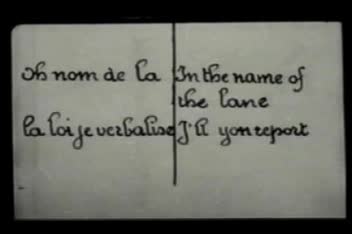 oh nom de la
la loi je verbalise
In the name of
the lane
J'll yon report